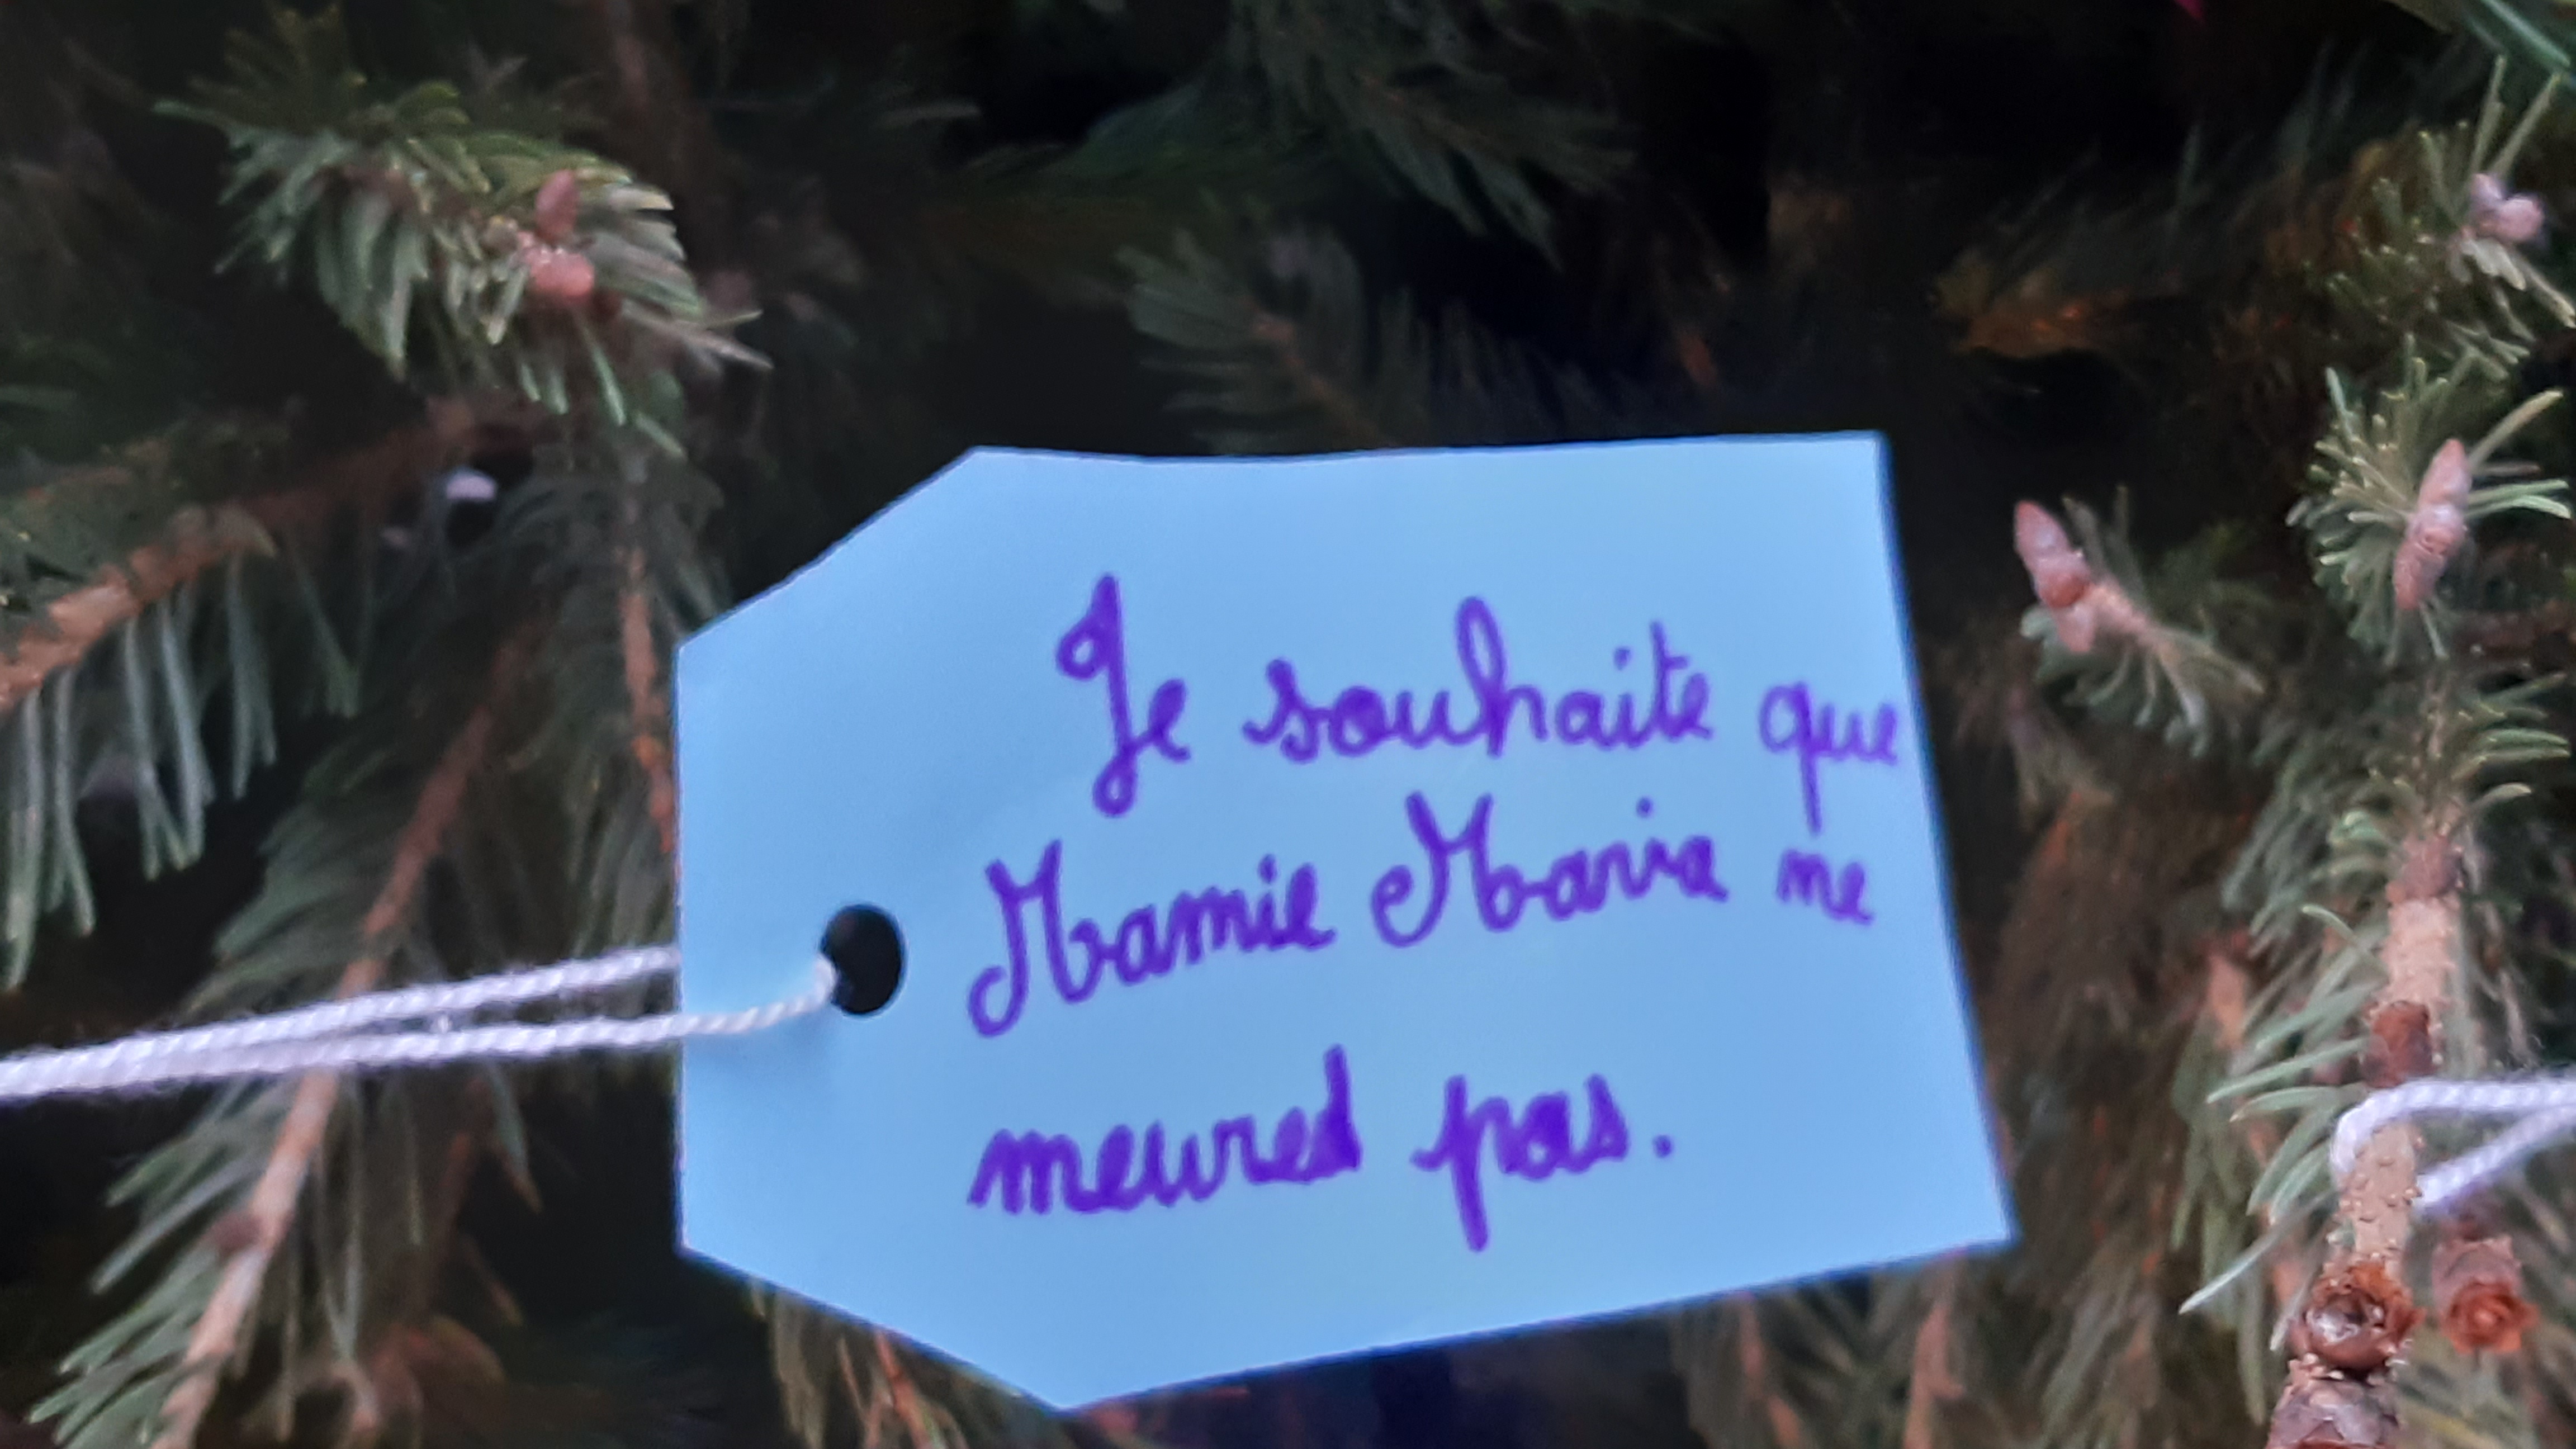 Je souhaite que
Mamie Maria ne
meured pas.